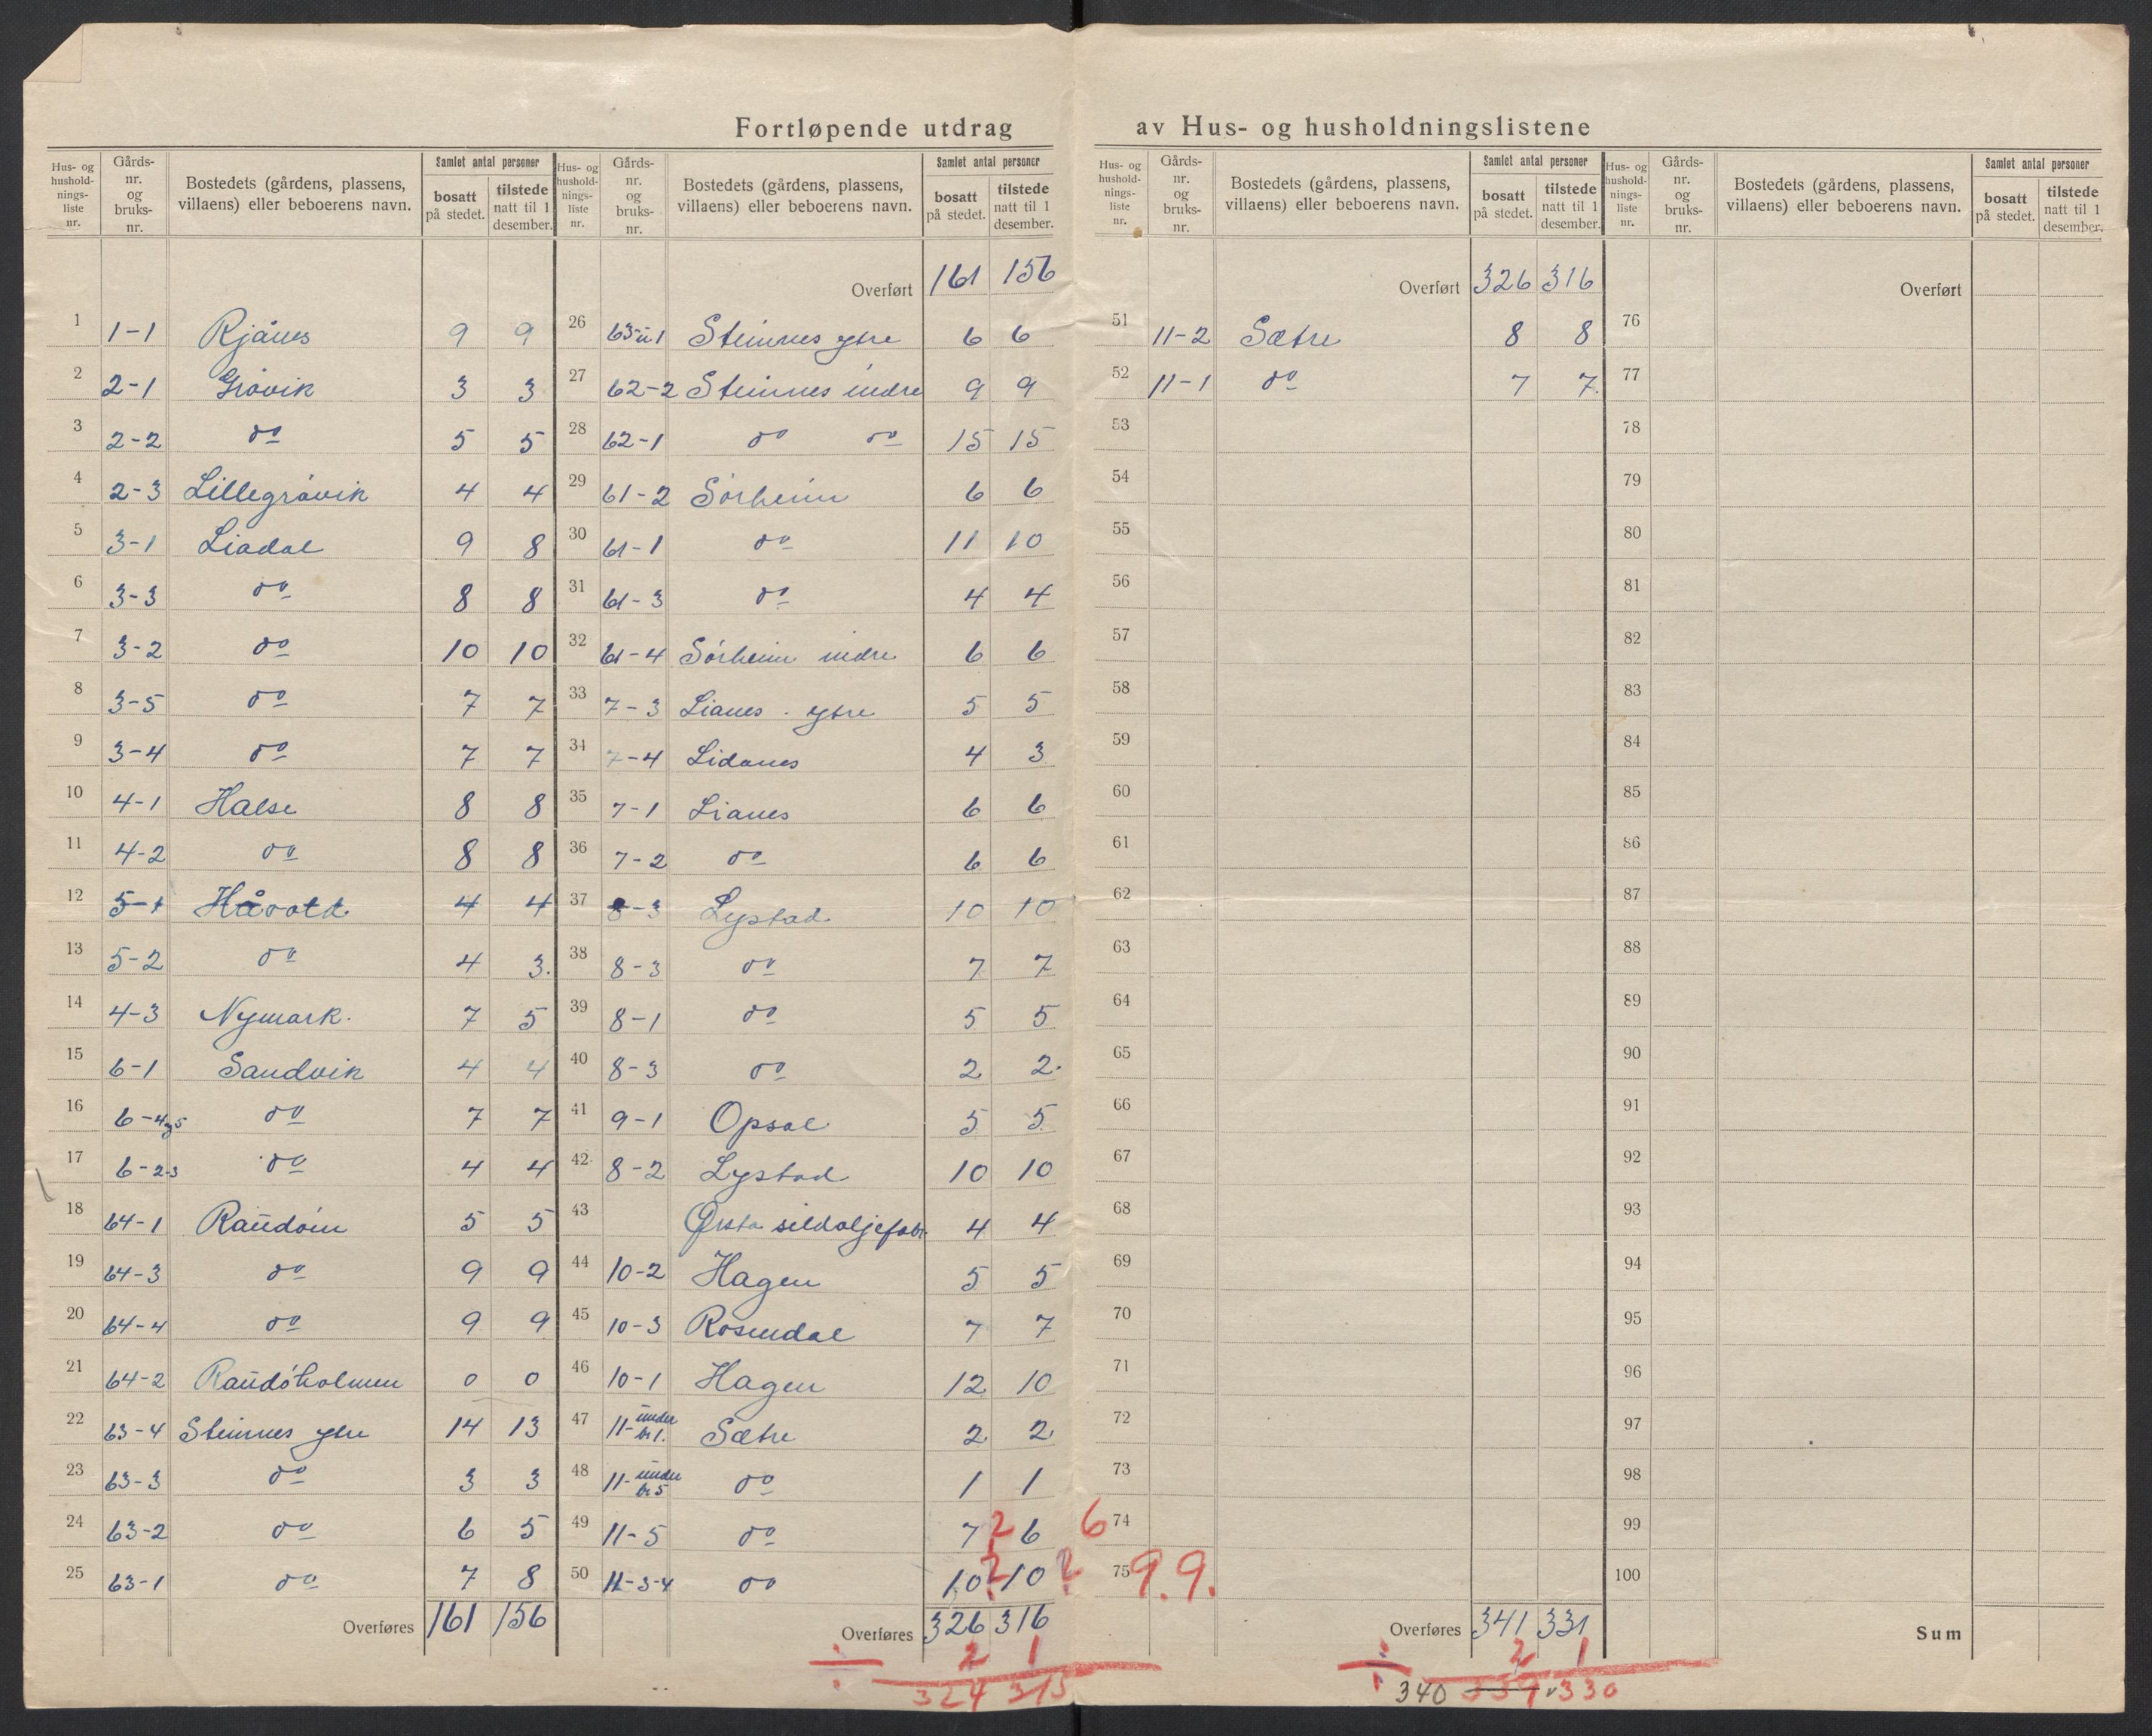 Fortløpende utdrag av Hus- og husholdningslistene
Hus- og husholdnings-liste nr. Gårds-nr. og bruks-nr. Bostedets (gårdens, plassens, villaens) eller beboerens navn. Samlet antal personer bosatt på stedet. tilstede natt til 1 desember.
1 1-1 Rjånes 9 9
2 2-1 Gråvik 3 3
3 2-2 do 5 5
4 2-3 Lillegråvik 4 4
5 3-1 Liadal 9 8
6 3-3 do 8 8
7 3-2 do 10 10
8 3-5 do 7 7
9 3-4 do 7 7
10 4-1 Halse 8 8
11 4-2 do 8 8
12 5-1 4 4
13 5-2 do 4 3.
14 4-3 Nymark. 7 5
15 6-1 Sandvik 4 4
16 6-4og5 do 7 7
17 6-2-3 do 4 4
18 64-1 5 5
19 64-3 do 9 9
20 64-4 do 9 9
21 64-2 Raudöholmen 0 0
22 63-4 Steinnes ytre 14 13
23 63-3 do 3 3
24 63-2 do 6 5
25 63-1 do 7 8
Overføres 161 156
Hus- og husholdnings-liste nr. Gårds-nr. og bruks-nr. Bostedets (gårdens, plassens, villaens) eller beboerens navn. Samlet antal personer bosatt på stedet. tilstede natt til 1 desember.
Overført 161 156
26 63-u1 Steinnes ytre 6 6
27 62-2 Steinnes indre 9 9
28 62-1 do do 15 15
29 61-2 Sörheim 6 6
30 61-1 do 11 10
31 61-3 do 4 4
32 61-4 Sörheim indre 6 6
33 7-3 Lianes - ytre 5 5
34 7-4 Lidanes 4 3
35 7-1 Lianes 6 6
36 7-2 do 6 6
37 8-3 Lystad 10 10
38 8-3 do 7 7
39 8-1 do 5 5
40 8-3 do 2 2.
41 9-1 Opsal 5 5
42 8-2 Lystad 10 10
43 Ørsta sildoljefabr. 4 4
44 10-2 Hagen 5 5
45 10-3 Rosendal 7 7
46 10-1 Hagen 12 10
47 11-under br 1. Sætre 2 2
48 11-under br 5 do 1 1
49 11-5 do 7 2 6 6
50 11-3-4 do 10 ? 10 ? 9. 9.
Overføres 326 316
÷ 2 1
324 315
Hus- og husholdnings-liste nr. Gårds-nr. og bruks-nr. Bostedets (gårdens, plassens, villaens) eller beboerens navn. Samlet antal personer bosatt på stedet. tilstede natt til 1 desember.
Overført 326 316
51 11-2 Sætre 8 8
52 11-1 do 7 7
53
54
55
56
57
58
59
60
61
62
63
64
65
66
67
68
69
70
71
72
73
74
75
Overføres 341 331
÷ 2 1
340 339 v 330
Hus- og husholdnings-liste nr. Gårds-nr. og bruks-nr. Bostedets (gårdens, plassens, villaens) eller beboerens navn. Samlet antal personer bosatt på stedet. tilstede natt til 1 desember.
Overført
76
77
78
79
80
81
82
83
84
85
86
87
88
89
90
91
92
93
94
95
96
97
98
99
100
Sum